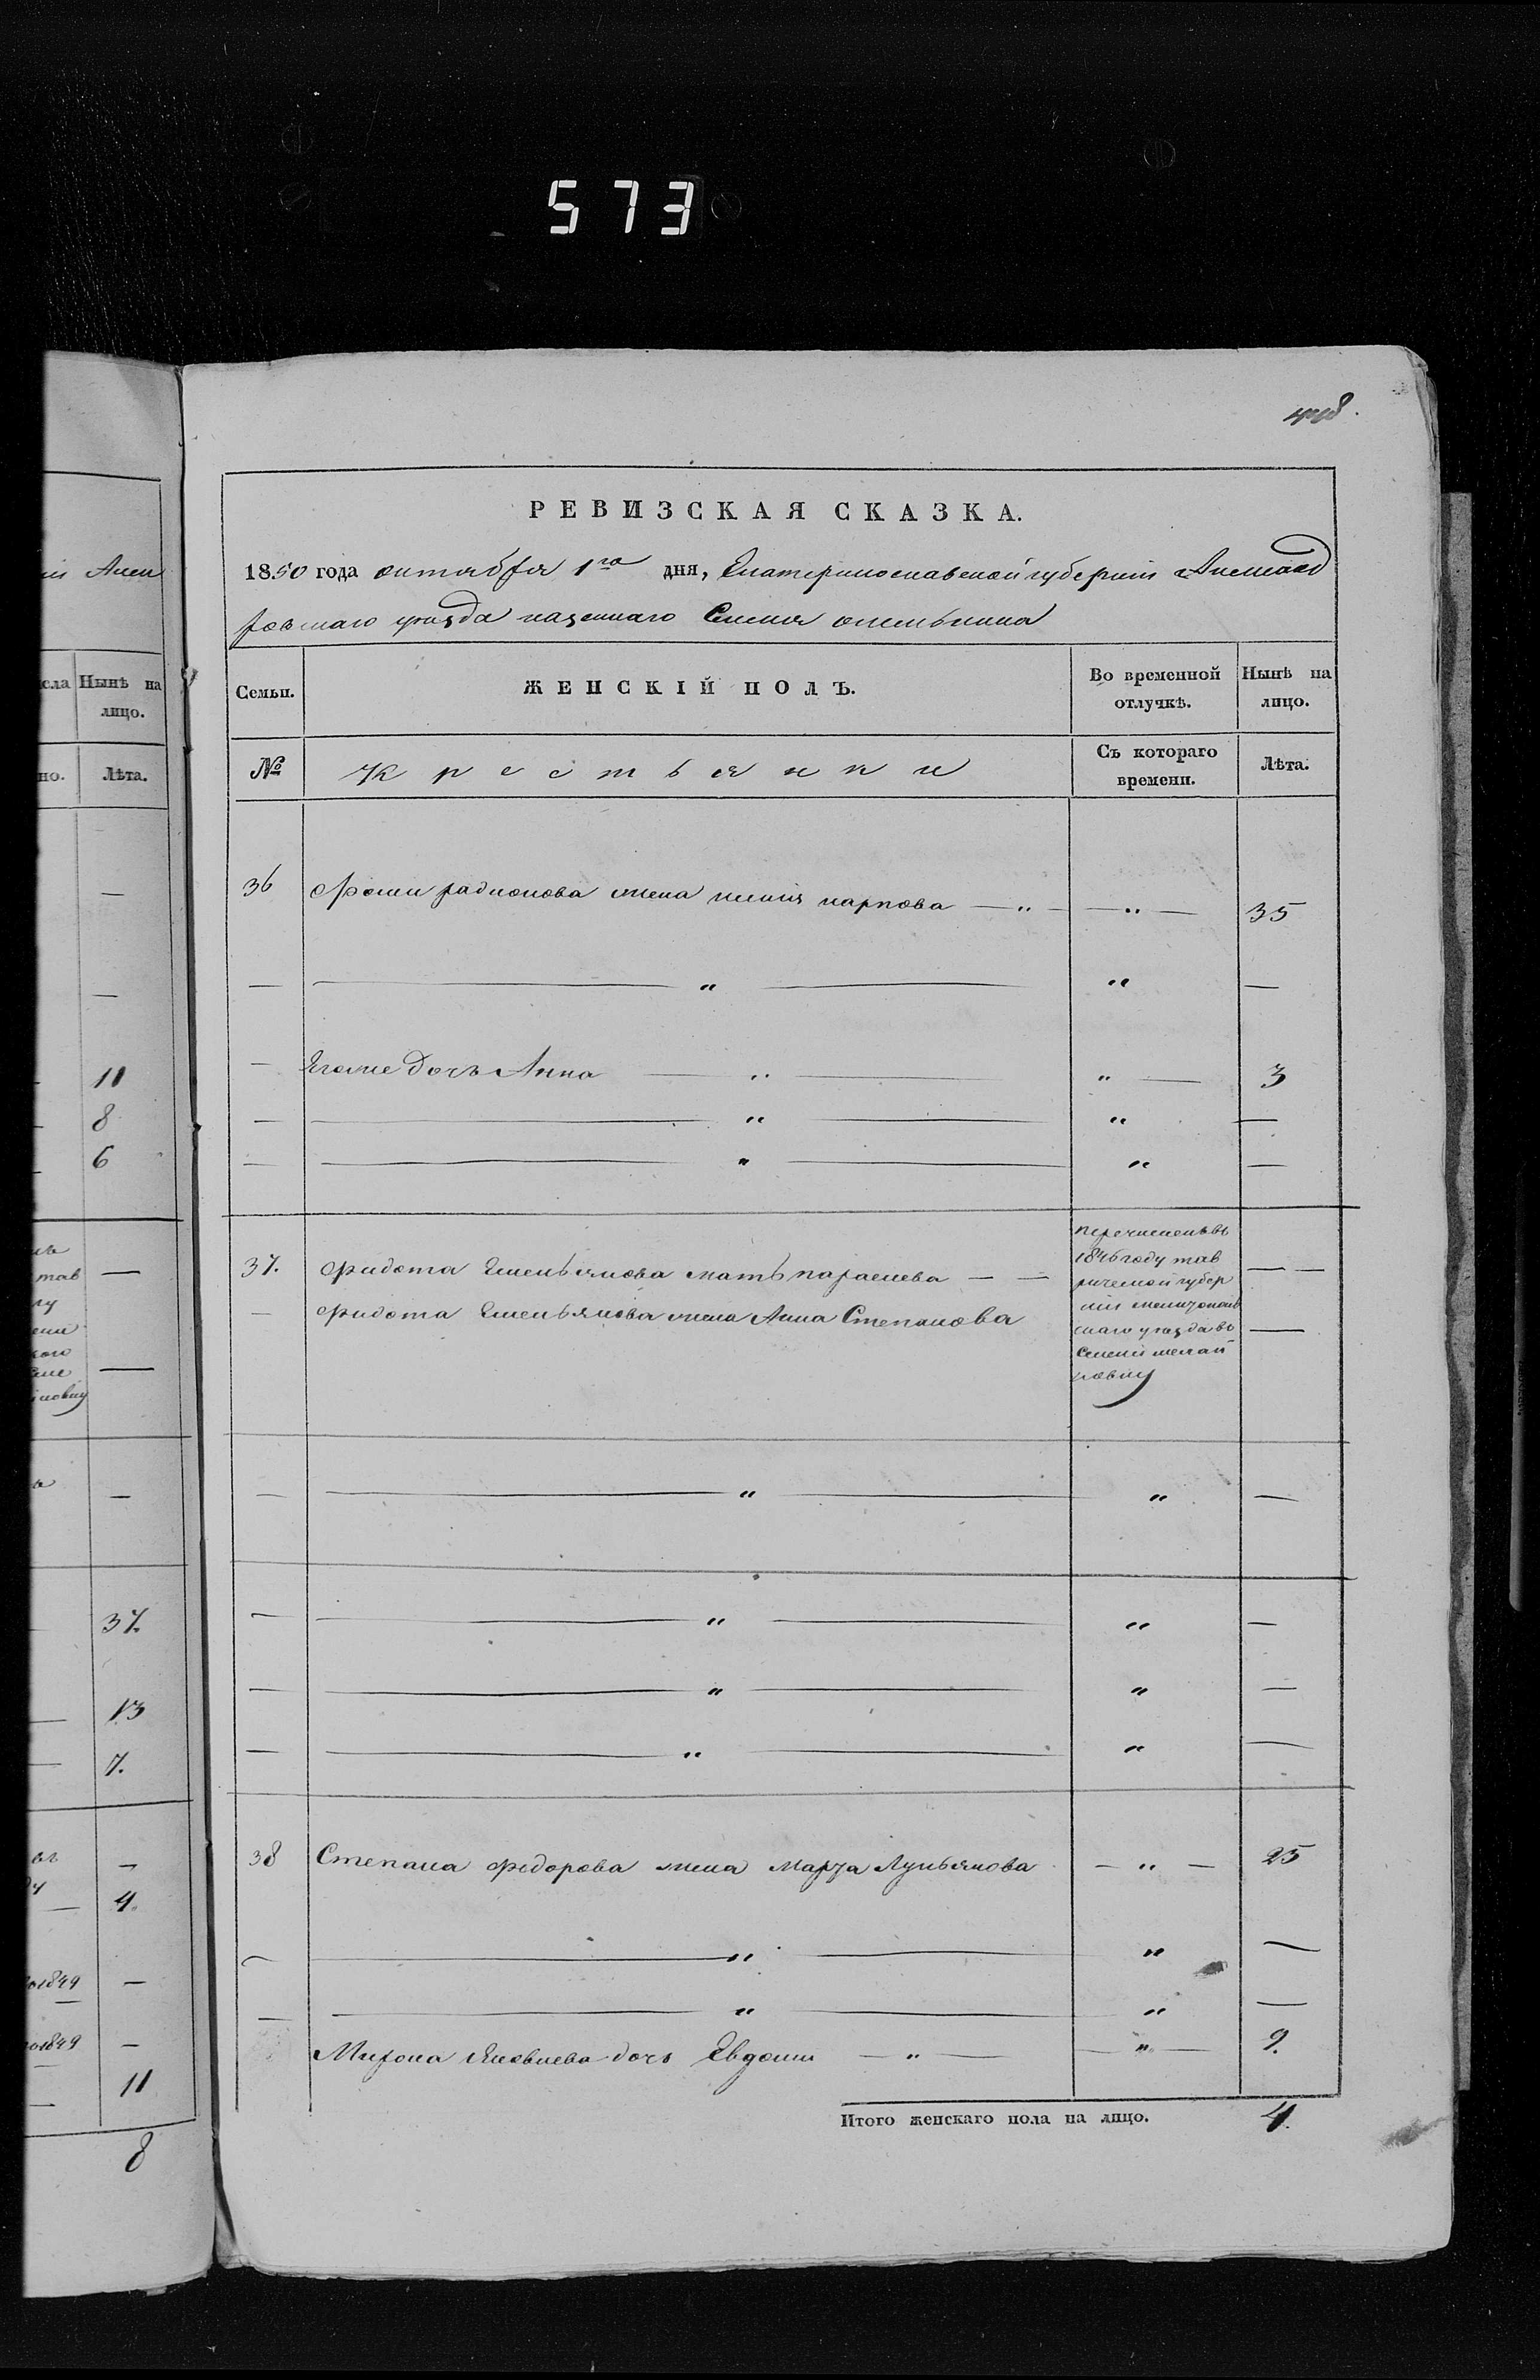 573
РЕВИЗСКАЯ СКАЗКА.
1850 года октября 1го дня, Екатеринославской губерніи Александ
ровскаго уезда казеннаго Селенія омельника
Семьи.
ЖЕНСКІЙ ПОЛЪ.
Во временной отлучкѣ.
Нынѣ на лицо.
№
Крестьянки
Съ котораго времени.
Лѣта.
36 Фомы радионова жена карпова — „ — — „ — 35
— — „ — „ —
— Егоже дочь Анна — „ — „ — 3
— — „ — „ —
— — „ — „ —
37. Федота Емельянова мать параскева — —
— Федота Емельянова жена Анна Степанова
перечислены въ
1846 году тав
рической губер
ніи мелитополь
скаго уезда въ
Селеніе
— —
—
— — „ — „ —
— — „ — „ —
— — „ — „ —
— — „ — „ —
38 Степана Федорова жена Марфа Лукьянова — „ — 25
— — „ — „ —
— — „ — „ —
Мирона Яковлева дочь Евдокия — „ — — „ — 9.
Итого женскаго пола на лицо. 4.
іи Алек
сла
Нынѣ на
лицо.
но.
Лѣта.
—
—
11
8
6
тав
—
—
—
37.
13
7.
—
4.
1849 —
1849 —
11
8